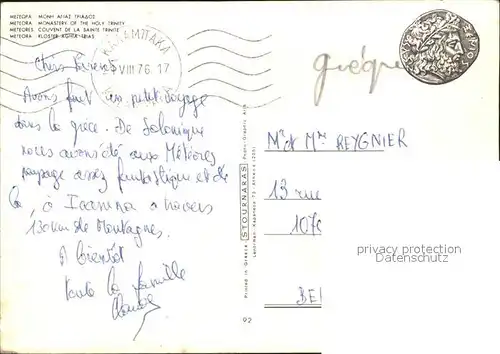 ΜΕΤΕΩΡΑ ΜΟΝΗ ΑΓΙΑΣ ΤΡΙΑΔΟΣ
METEORA MONASTERY OF THE HOLY TRINITY
METEORES COUVENT DE LA SAINTE TRINITE
METEORA KLOSTER AGHIA TRIAS
ΚΑΛΑΜΠΑΚΑ
VIII 76. 17
grèque
Chers
Avons fait un petit voyage
dans la grèce. De Salonique
nous avons été aux Météores
paysage assez fantastique et de
là, à Ioannina à travers
130 km de Montagnes.
A bientôt
toute la famille
Printed in Greece
STOURNARAS
92
Mr et Mme REYGNIER
13 rue
1070
BE
privacy protection
Datenschutz